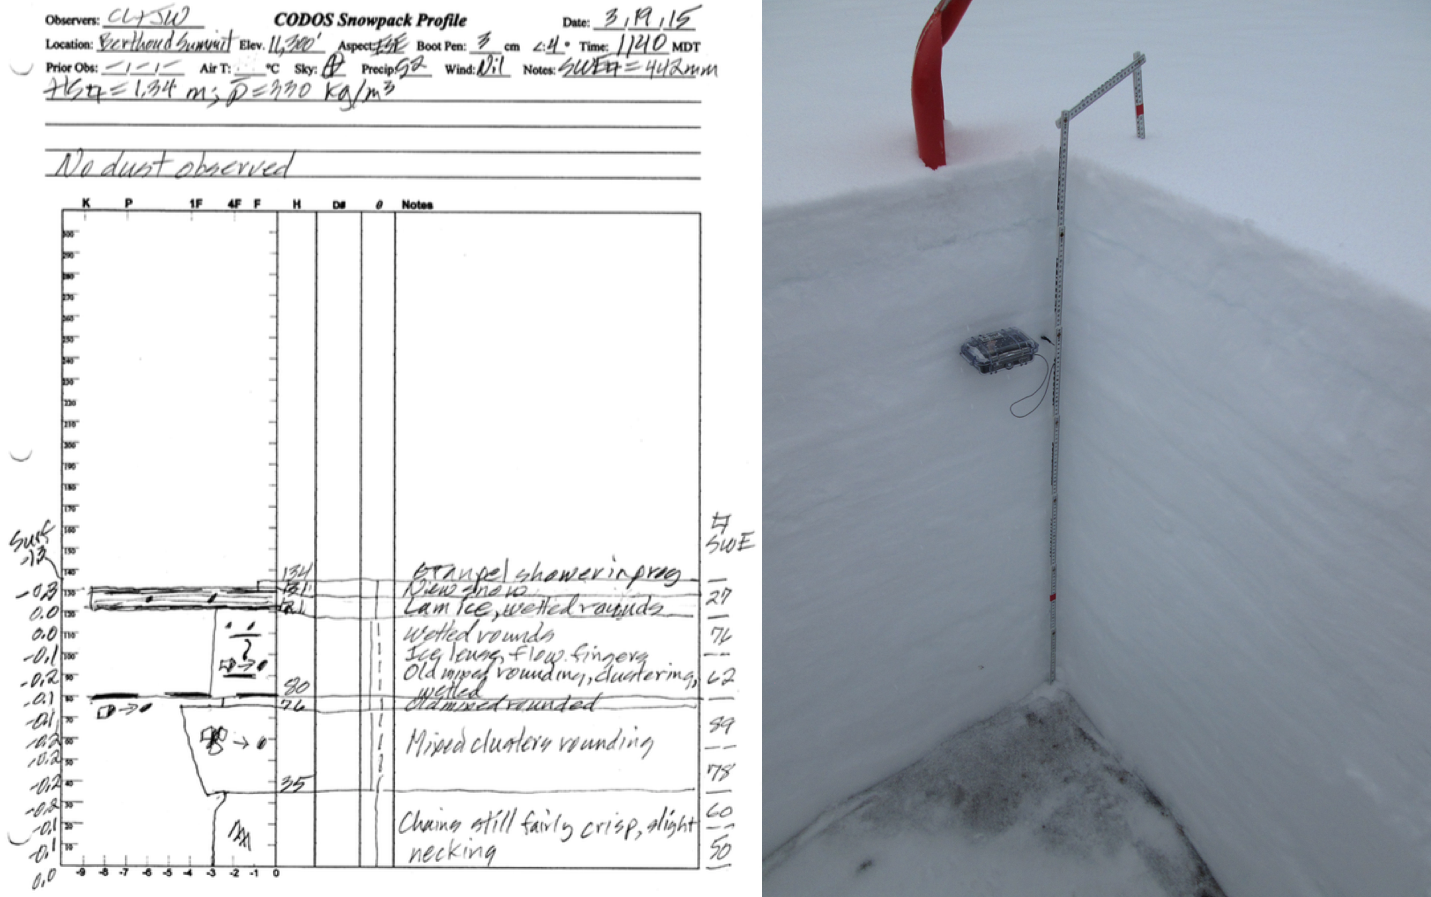 Observers: CL+JW CODOS Snowpack Profile Date: 3,19,15
Location: Berthoud Summit Elev. 11,300' Aspect: ESE Boot Pen: 3 cm ∠:4° Time: 1140 MDT
Prior Obs: —/—/— Air T: °C Sky: Precip: Wind: Nil Notes: SWE = 442mm
HS = 1.34 m; ρ = 330 kg/m³
No dust observed
K P 1F 4F F H D# θ Notes
300
290
280
270
260
250
240
230
220
210
200
190
180
170
160
Surf # SWE
150
140 134 Graupel shower in prog
-0.3 130 131 New snow 27
0.0 120 121 Lam ice, wetted rounds
0.0 110 wetted rounds 76
-0.1 100 Ice lense, flow fingers
-0.2 90 Old mixed rounding, clustering, 62
80 wetted
-0.1 80 76 Old mixed rounded
-0.1 70 89
-0.2 60 Mixed clusters rounding
-0.2 50 78
-0.2 40 35
-0.2 30 60
-0.1 20 Chains still fairly crisp, slight
-0.1 10 necking 50
0.0 -9 -8 -7 -6 -5 -4 -3 -2 -1 0